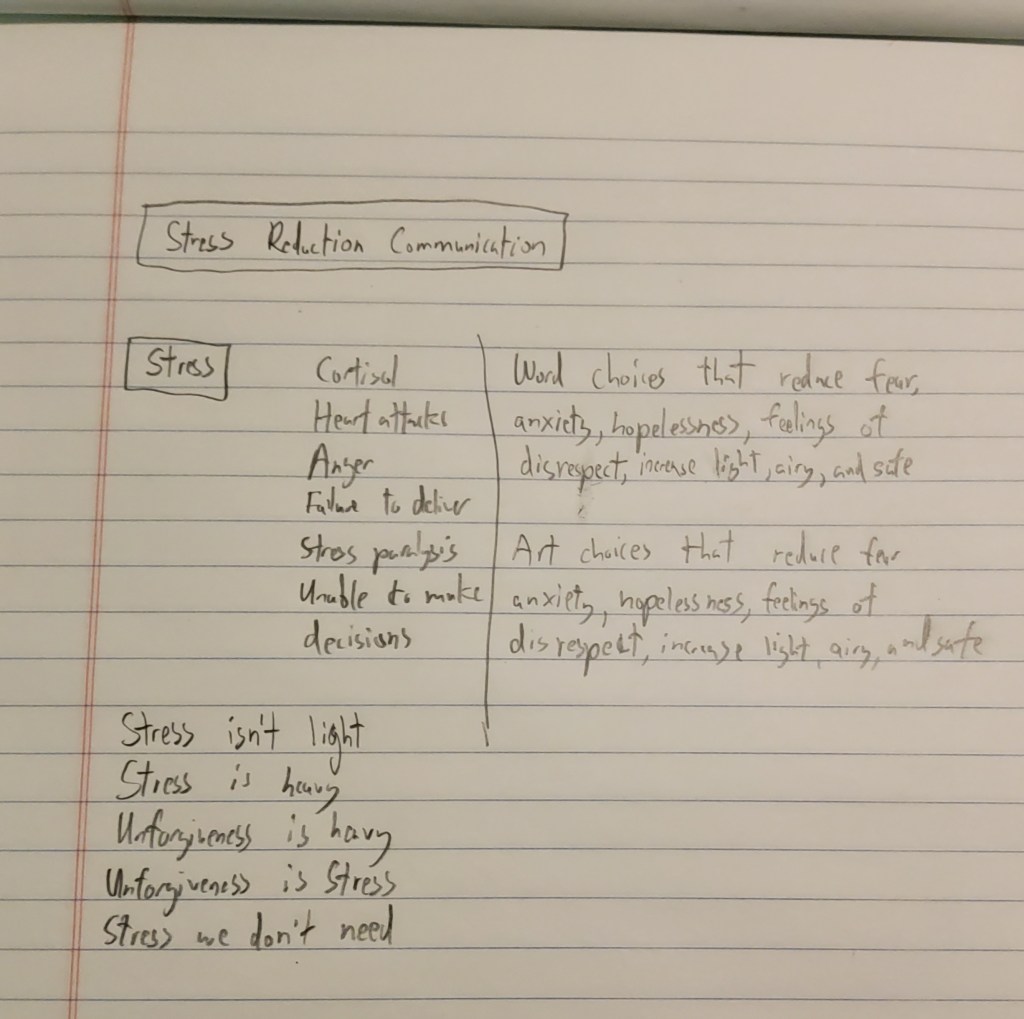 Stress Reduction Communication
Stress
Cortisol
Heart attacks
Anger
Failure to deliver
Stress paralysis
Unable to make
decisions
Word choices that reduce fear,
anxiety, hopelessness, feelings of
disrespect, increase light, airy, and safe
Art choices that reduce fear
anxiety, hopelessness, feelings of
disrespect, increase light, airy, and safe
Stress isn't light
Stress is heavy
Unforgiveness is havy
Unforgiveness is Stress
Stress we don't need